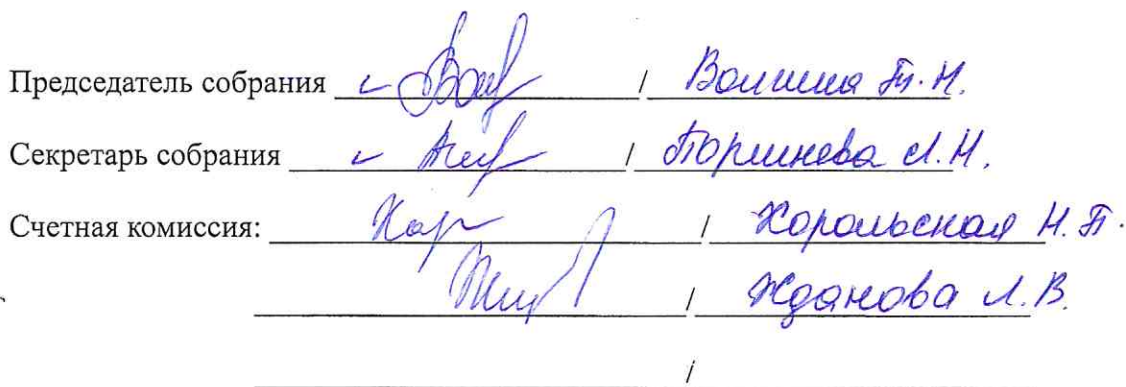 Председатель собрания / Волгина Т.Н.
Секретарь собрания / Поршнева Л.Н.
Счетная комиссия: / Хорольская Н.П.
/ Жданова Л.В.
/